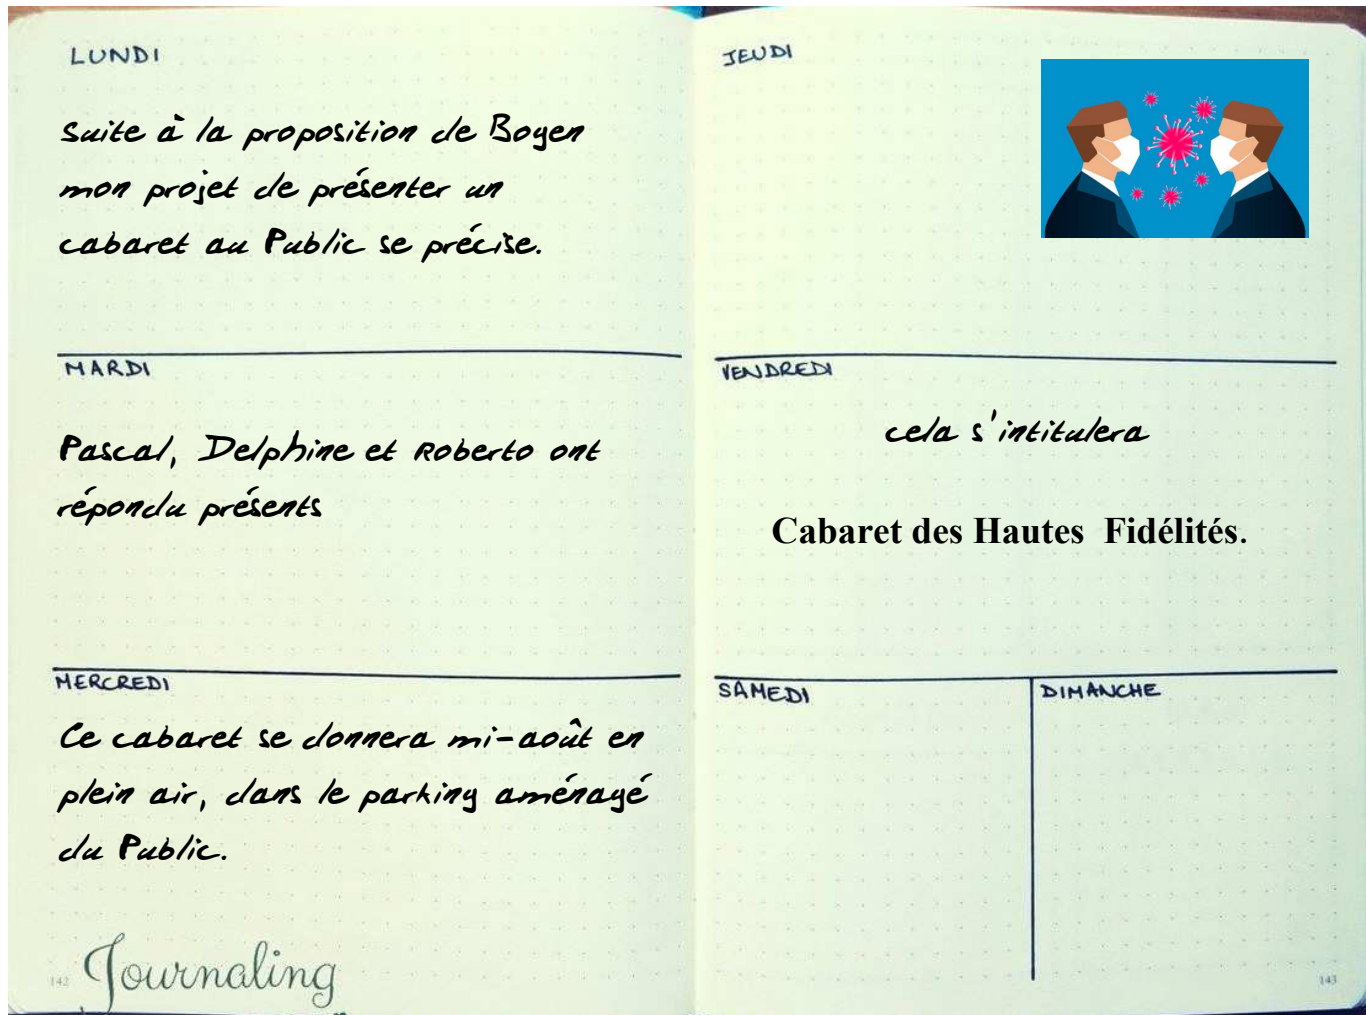 LUNDI
suite à la proposition de Boyen
mon projet de présenter un
cabaret au Public se précise.
MARDI
Pascal, Delphine et Roberto ont
répondu présents
MERCREDI
Ce cabaret se donnera mi-août en
plein air, dans le parking aménagé
du Public.
142
Journaling
JEUDI
VENDREDI
cela s'intitulera
Cabaret des Hautes Fidélités.
SAMEDI
DIMANCHE
143